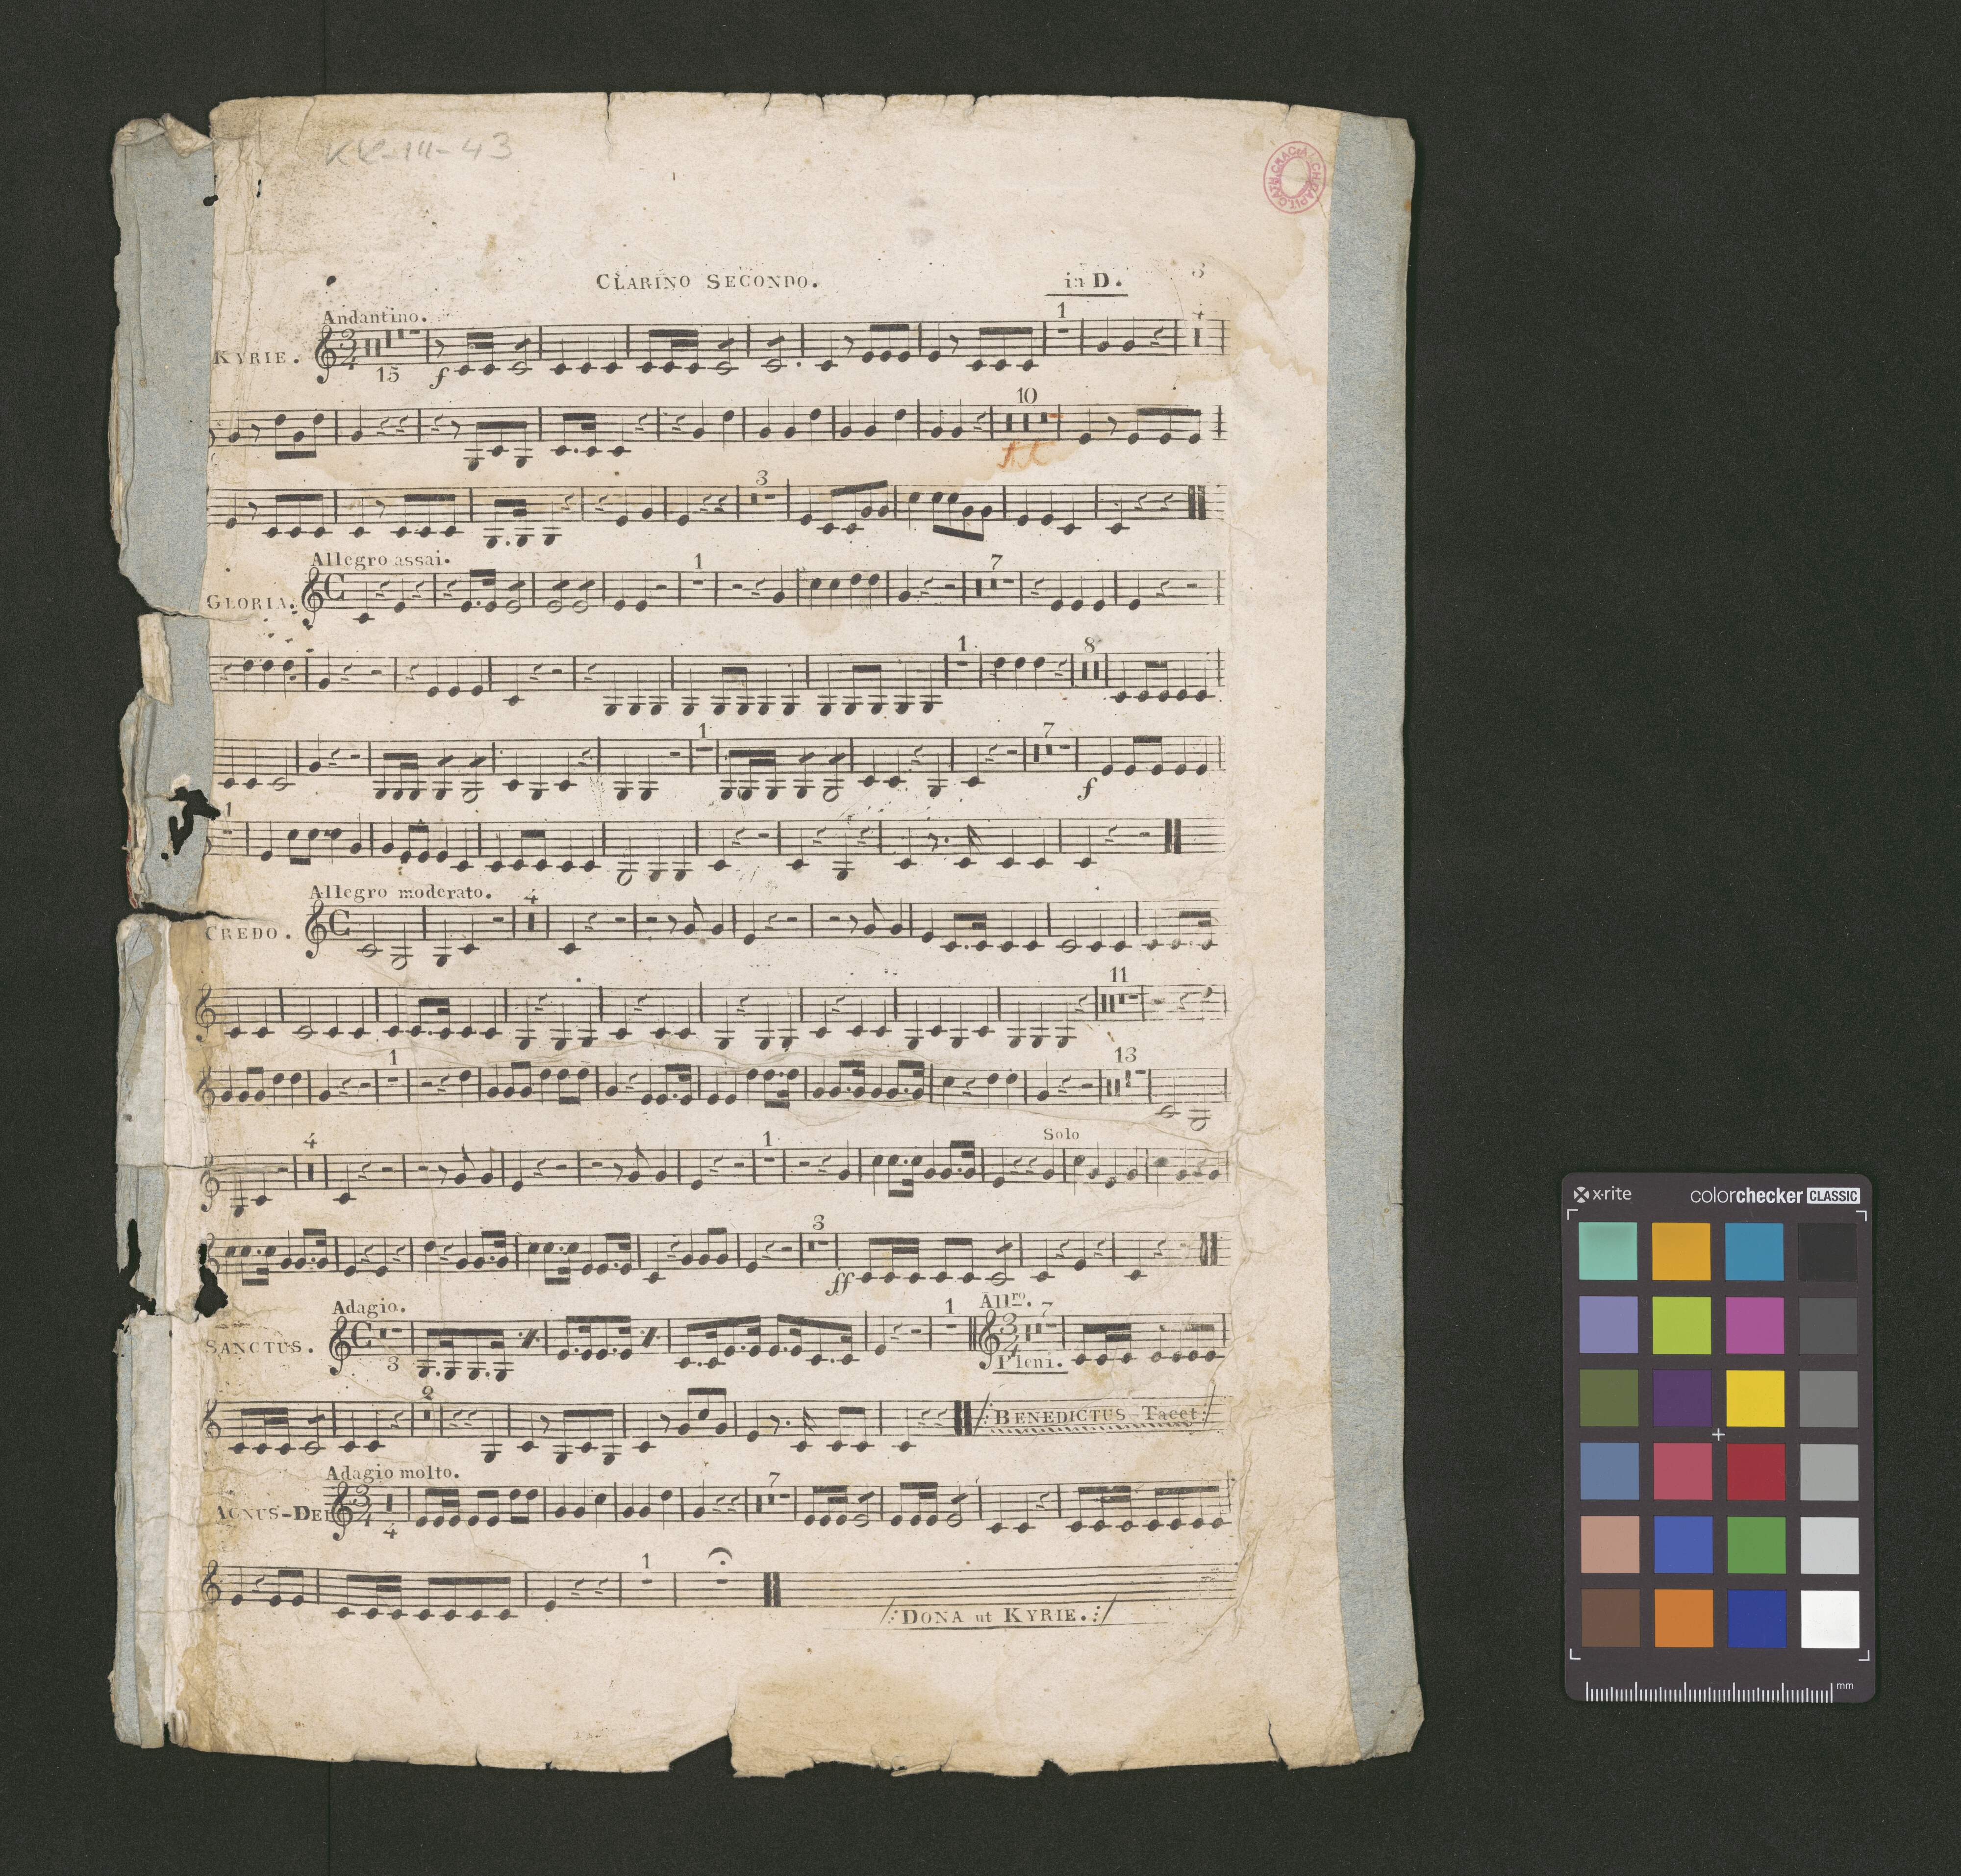 KK-III-43
CLARINO SECONDO.
in D.
Andantino.
KYRIE.
15
f
1
4
10
3
Allegro assai.
GLORIA.
1
7
1
8
1
7
f
1
Allegro moderato.
CREDO.
4
11
1
13
4
1
Solo
3
ff
Adagio.
SANCTUS.
3
1
Allro.
7
Pleni.
2
/: BENEDICTUS-Tacet :/
Adagio molto.
AGNUS-DEI
4
7
1
/: DONA ut KYRIE. :/
x-rite
colorchecker CLASSIC
mm